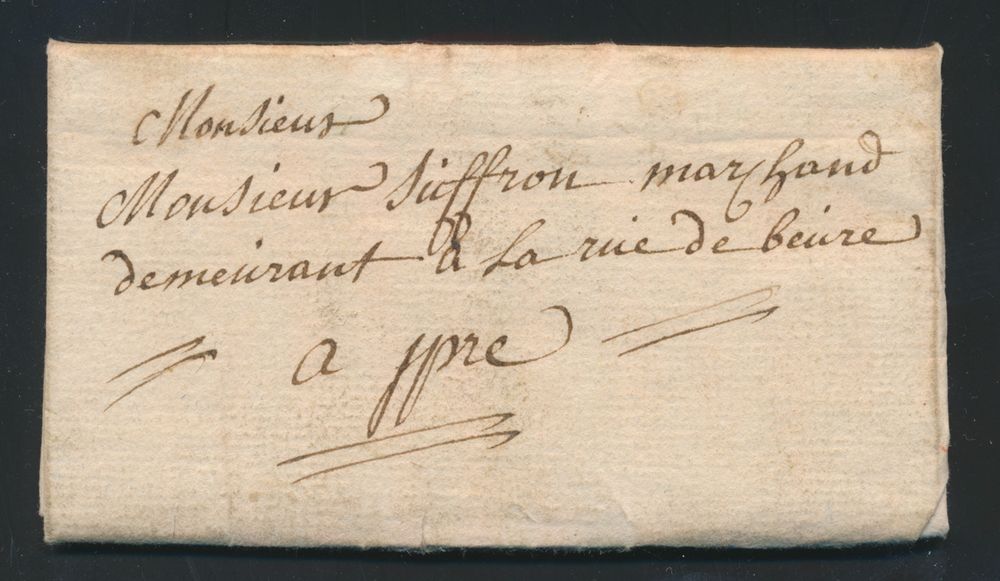 Monsieur
Monsieur Suffron marchand
demeurant à la rue de beure
a ypre